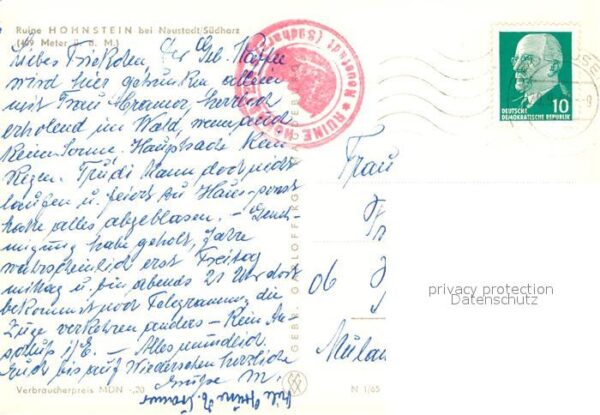 Ruine HOHNSTEIN bei Neustadt/Südharz
(409 Meter ü. d. M.)
Liebes Friedchen, der Geb. Kaffee
wird hier getrunken allein
mit Frau Cramer, herrlich
erholend im Wald, wenn auch
keine Sonne. Hauptsache kein
Regen. Trudi kann doch nicht
laufen u. feiert zu Haus, sonst
hatte alles abgeblasen. –
migung habe geholt, fahre
wahrscheinlich erst Freitag
mittag u. bin abends 21 Uhr dort
bekommst noch Telegramm, die
Züge verkehren anders – Kein An-
schluß i/E. – Alles mündlich.
Euch bis auf Wiedersehen herzliche
Grüße M.
Viele Grüße
Verbraucherpreis MDN -,20
N 1/65
GEBR. GARLOFF
RUINE
Neustadt (Südharz)
10
DEUTSCHE
DEMOKRATISCHE REPUBLIK
Frau
06
privacy protection
Datenschutz